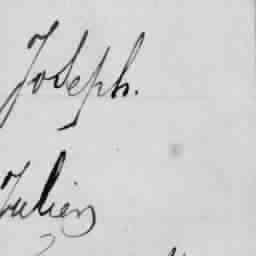 Joseph.
Julien